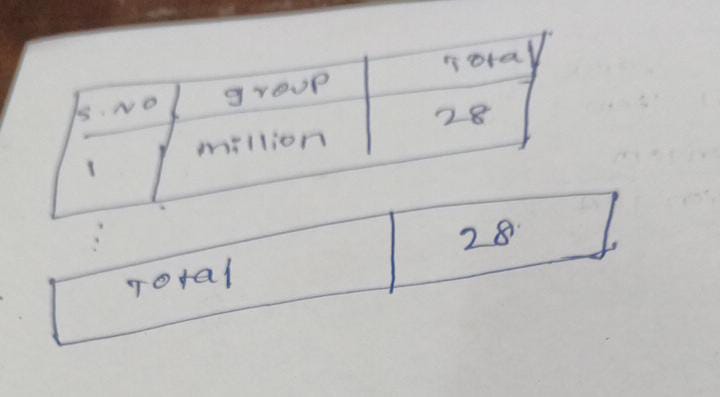 S.NO group Total
1 million 28
⋮
Total 28